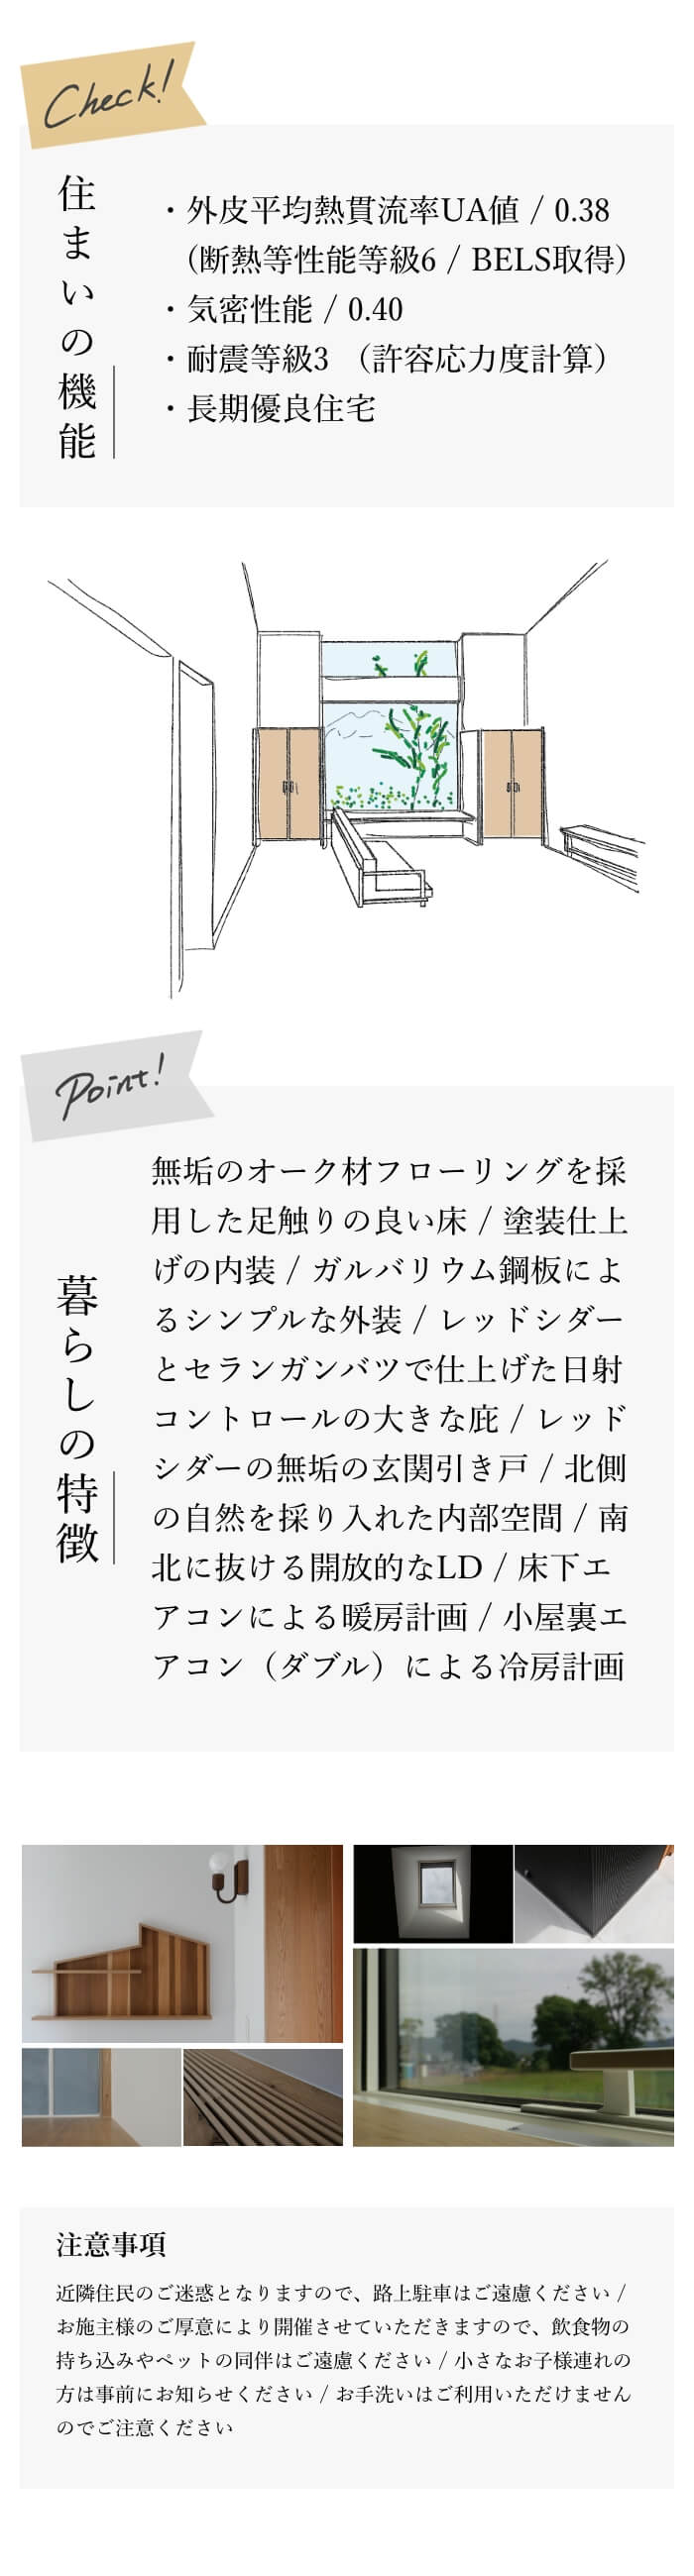 Check!
住まいの機能
・外皮平均熱貫流率UA値 / 0.38
（断熱等性能等級6 / BELS取得）
・気密性能 / 0.40
・耐震等級3 （許容応力度計算）
・長期優良住宅
Point!
暮らしの特徴
無垢のオーク材フローリングを採
用した足触りの良い床 / 塗装仕上
げの内装 / ガルバリウム鋼板によ
るシンプルな外装 / レッドシダー
とセランガンバツで仕上げた日射
コントロールの大きな庇 / レッド
シダーの無垢の玄関引き戸 / 北側
の自然を採り入れた内部空間 / 南
北に抜ける開放的なLD / 床下エ
アコンによる暖房計画 / 小屋裏エ
アコン（ダブル）による冷房計画
注意事項
近隣住民のご迷惑となりますので、路上駐車はご遠慮ください /
お施主様のご厚意により開催させていただきますので、飲食物の
持ち込みやペットの同伴はご遠慮ください / 小さなお子様連れの
方は事前にお知らせください / お手洗いはご利用いただけません
のでご注意ください